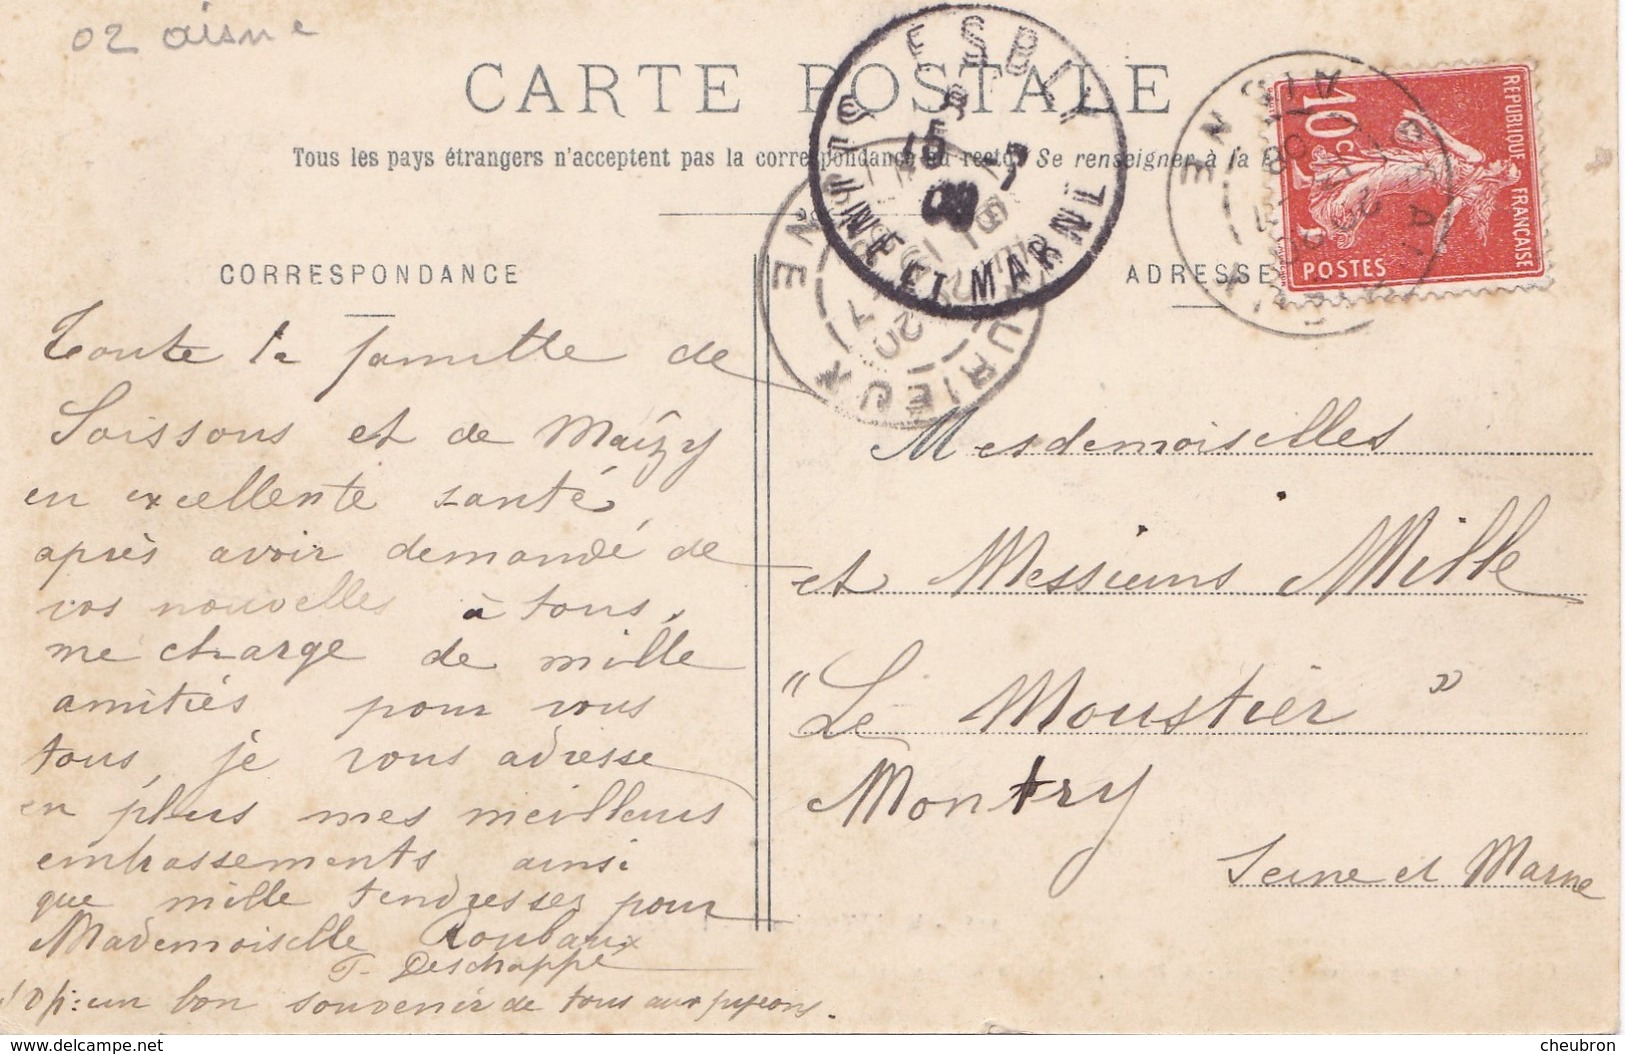 02 aisne
CARTE POSTALE
Tous les pays étrangers n'acceptent pas la correspondance au recto. Se renseigner à la
CORRESPONDANCE
ADRESSE
REPUBLIQUE FRANÇAISE
10c
POSTES
ESBLY
SEINE ET MARNE
15
09
AISNE
Toute la famille de
Soissons et de Maizy
en excellente santé,
après avoir demandé de
vos nouvelles à tous,
me charge de mille
amitiés pour vous
tous, je vous adresse
en plus mes meilleurs
embrassements ainsi
que mille tendresses pour
Mademoiselle Roubaux
T. Deschappe
un bon souvenir de tous aux pigeons.
Mesdemoiselles
et Messieurs Mille
"Le Moustier"
Montry
Seine et Marne
www.delcampe.net
cheubron